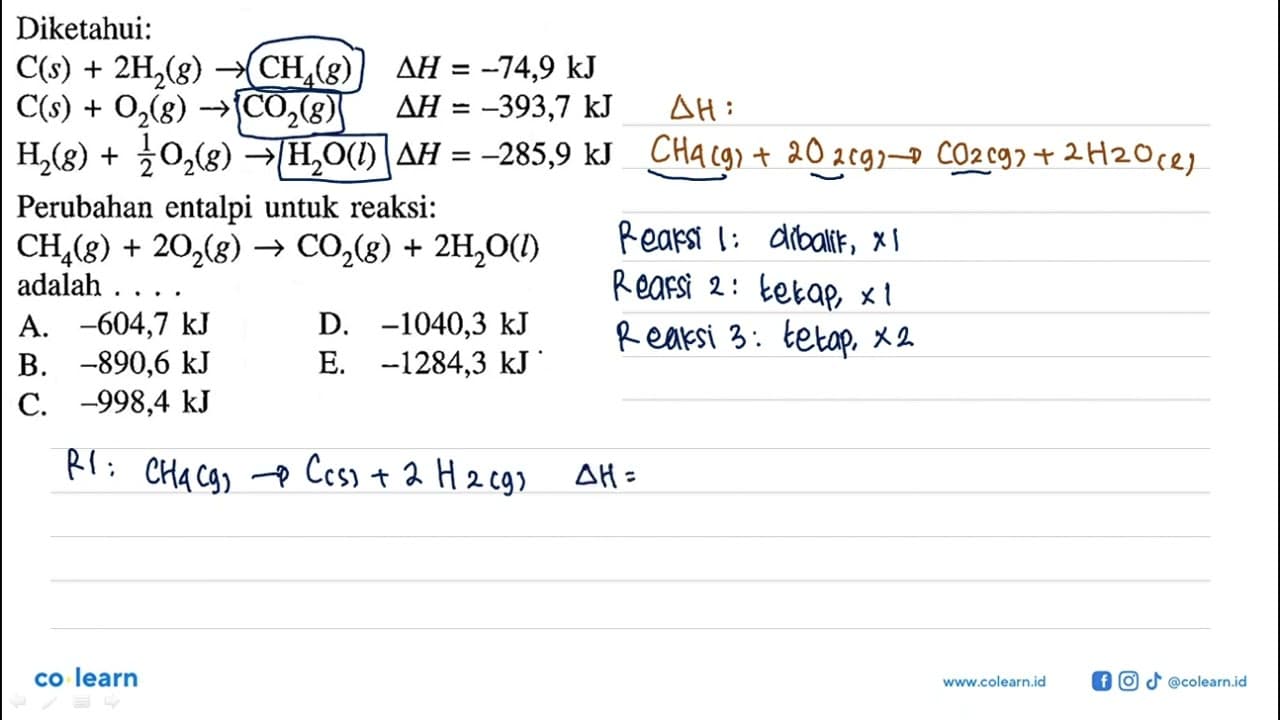 Diketahui:
C(s) + 2H₂(g) → CH₄(g) ΔH = –74,9 kJ
C(s) + O₂(g) → CO₂(g) ΔH = –393,7 kJ
H₂(g) + ½O₂(g) → H₂O(l) ΔH = –285,9 kJ
Perubahan entalpi untuk reaksi:
CH₄(g) + 2O₂(g) → CO₂(g) + 2H₂O(l)
adalah . . . .
A. –604,7 kJ D. –1040,3 kJ
B. –890,6 kJ E. –1284,3 kJ
C. –998,4 kJ
ΔH :
CH4(g) + 2O2(g) → CO2(g) + 2H2O(l)
Reaksi 1: dibalik, x1
Reaksi 2: tetap, x1
Reaksi 3: tetap, x2
R1: CH4(g) → C(s) + 2 H2(g) ΔH =
co learn
www.colearn.id
@colearn.id